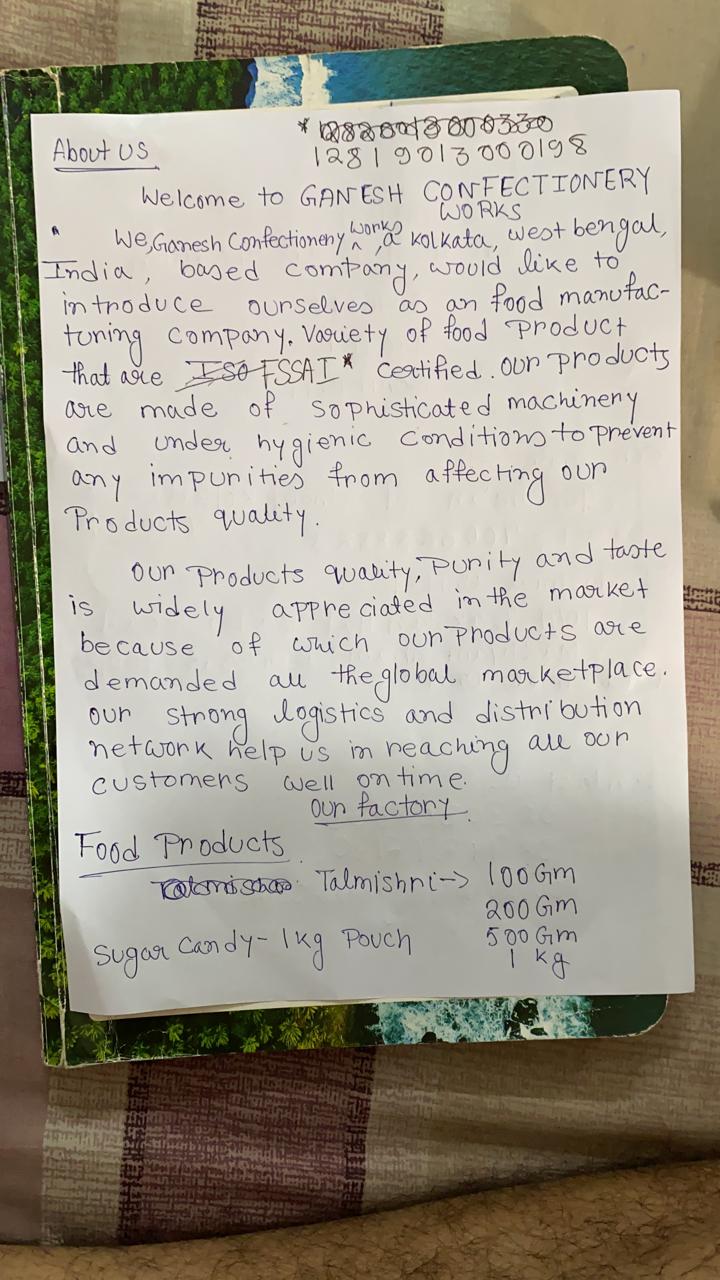 About us
12819013000198
Welcome to GANESH CONFECTIONERY
WORKS
We, Ganesh Confectionery works, a kolkata, west bengal,
India, based company, would like to
introduce ourselves as an food manufac-
turing company. Variety of food product
that are ISO FSSAI* Certified. our products
are made of sophisticated machinery
and under hygienic conditions to prevent
any impurities from affecting our
Products quality.
our products quality, purity and taste
is widely appreciated in the market
because of which our products are
demanded all the global marketplace.
our strong logistics and distribution
network help us in reaching all our
customers well on time.
our factory
Food Products
Talmishri -> 100 Gm
200 Gm
Sugar candy - 1kg Pouch 500 Gm
1 kg